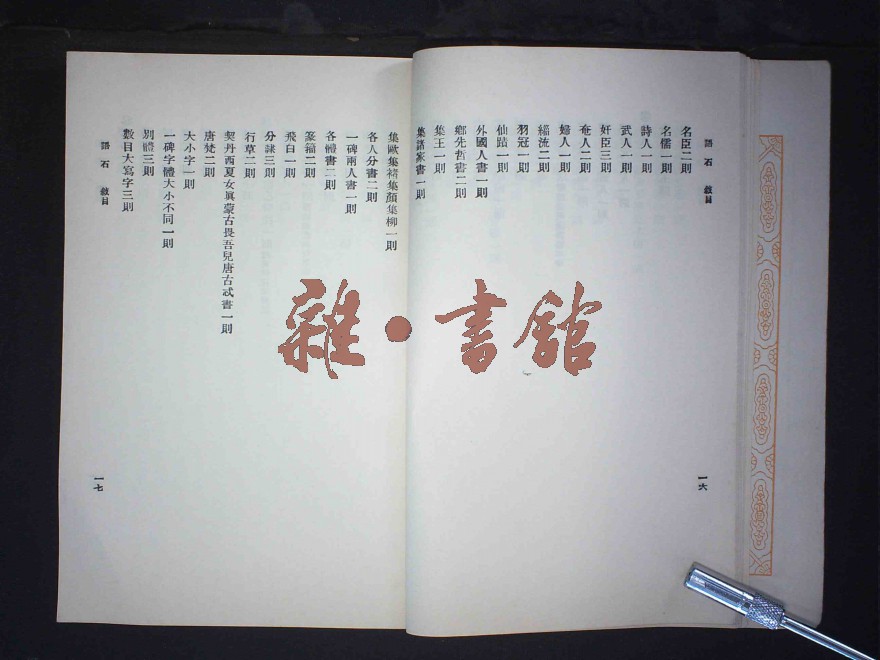 語石　敍目
名臣二則
名儒一則
詩人一則
武人一則
奸臣三則
奄人二則
婦人一則
緇流二則
羽冠一則
仙蹟一則
外國人書一則
鄉先哲書二則
集王一則
集諸家書一則
一六
集歐集褚集顏集柳一則
各人分書二則
一碑兩人書一則
各體書二則
篆籀二則
飛白一則
分隸三則
行草二則
契丹西夏女眞蒙古畏吾兒唐古忒書一則
唐梵二則
大小字一則
一碑字體大小不同一則
別體三則
數目大寫字三則
語石　敍目
一七
雜·書館